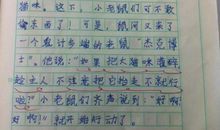 猫咪。这下，小老鼠们可不敢
出来了！可是，鼠网又来了
一个鬼计多端的老鼠"杰克博
士"。他说："如果把大猫味灌醉，
趁主人不注意把它抬走不就行
啦？"小老鼠们齐声说到："好啊！
好啊！"就开始行动了。